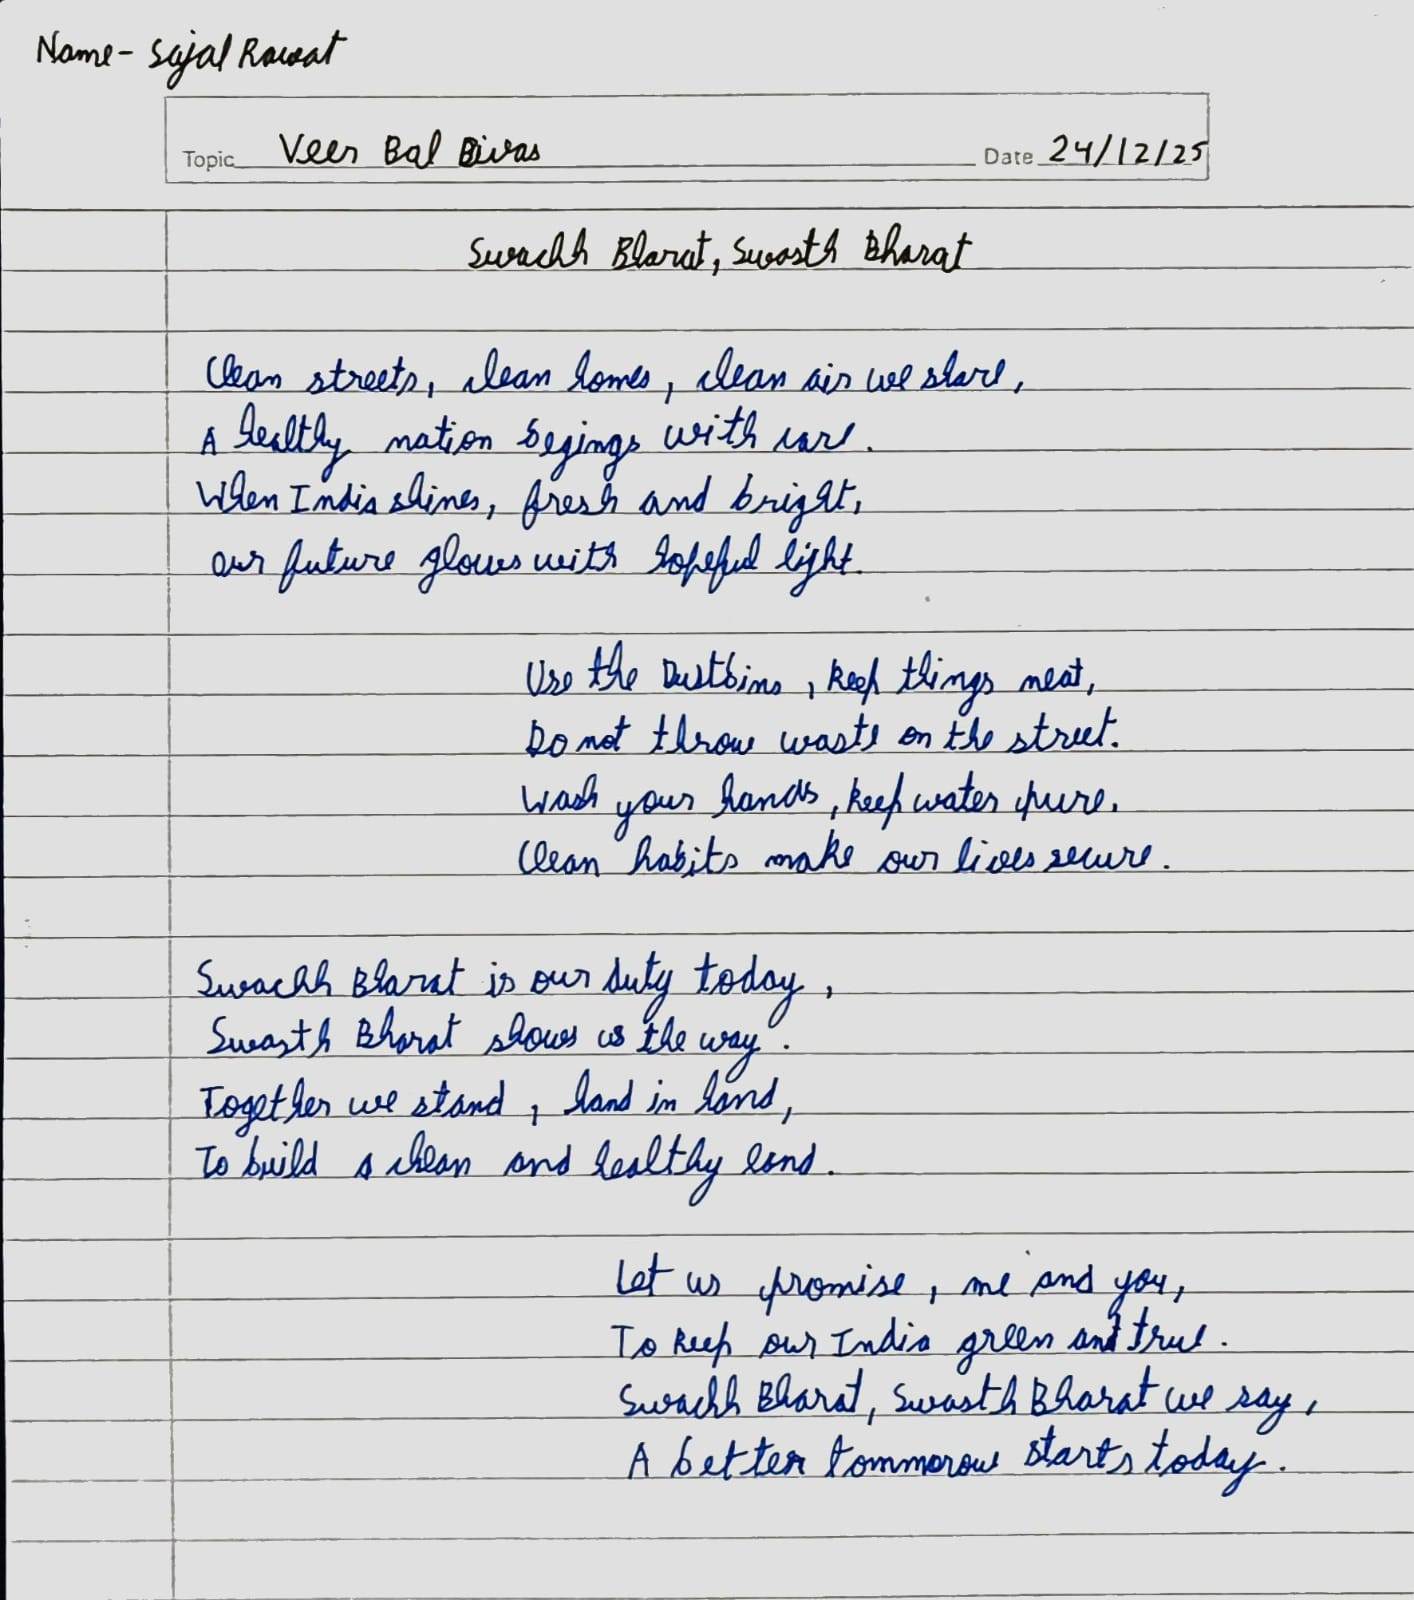 Name- Sajal Rawat
Topic Veer Bal Divas Date 24/12/25
Swachh Bharat, Swasth Bharat
Clean streets, clean homes, clean air we share,
A healthy nation begings with care.
When India shines, fresh and bright,
our future glows with hopeful light.
Use the Dustbins, keep things neat,
Do not throw waste on the street.
Wash your hands, keep water pure.
Clean habits make our lives secure.
Swachh Bharat is our duty today,
Swasth Bharat shows us the way.
Together we stand, hand in hand,
To build a clean and healthy land.
Let us promise, me and you,
To keep our India green and true.
Swachh Bharat, Swasth Bharat we say,
A better tommorow starts today.